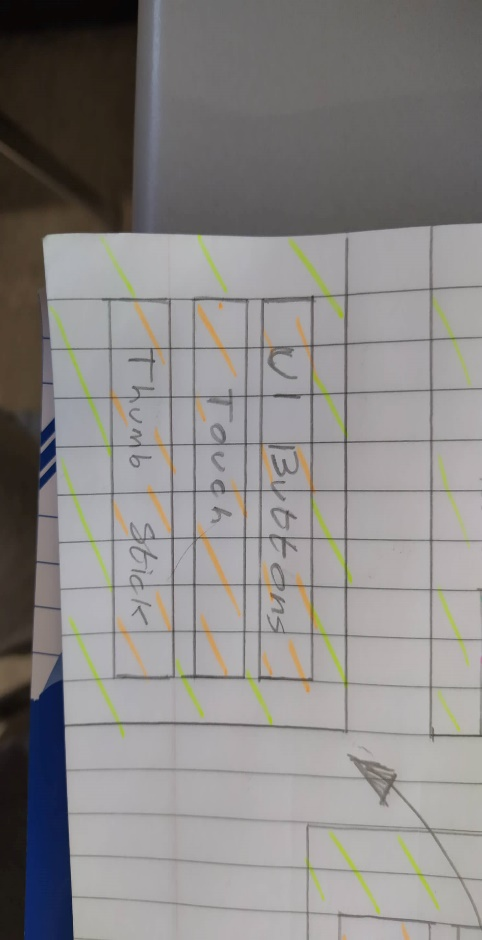 UI Buttons
Touch
Thumb Stick